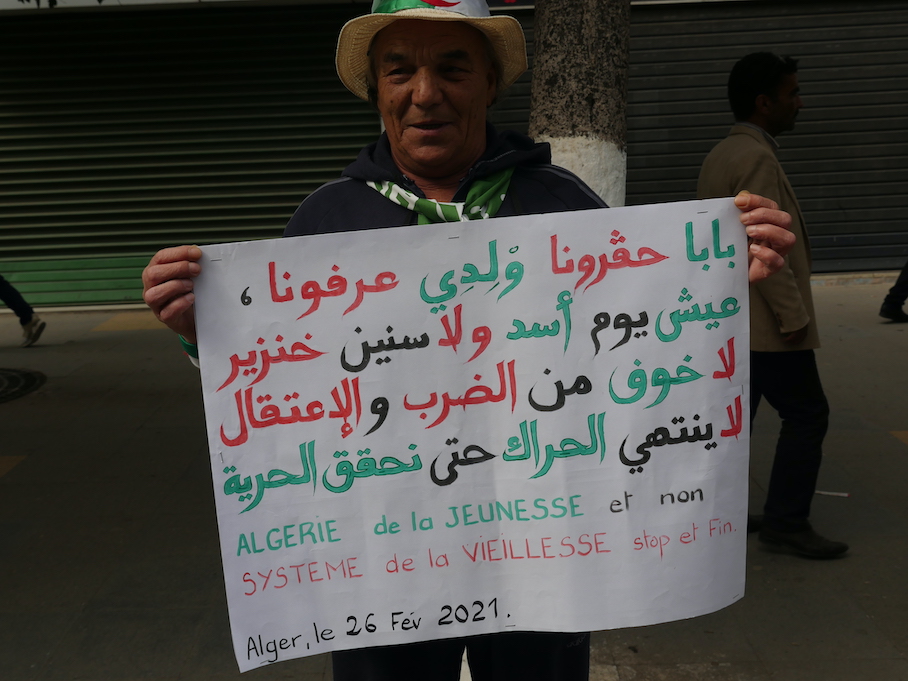 بابا حڨرونا وْلِدِي عرفونا ،
عيش يوم أسد ولا سنين خنزير
لا خوف من الضرب و الإعتقال
لا ينتهي الحراك حتى نحقق الحرية
ALGERIE de la JEUNESSE et non
SYSTEME de la VIEILLESSE stop et Fin.
Alger, le 26 Fév 2021.